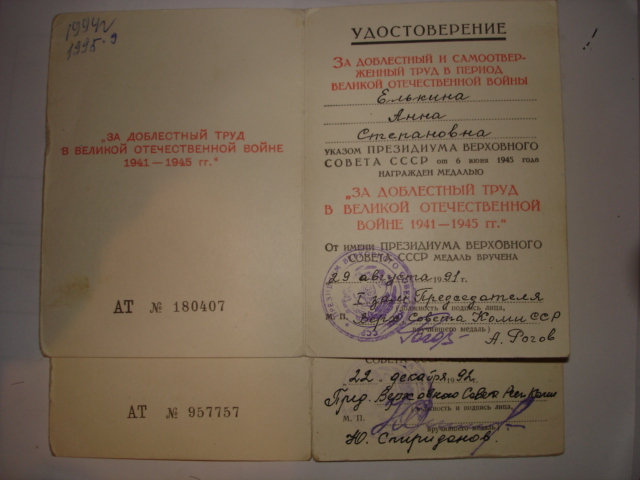 1994г
1995-9
„ЗА ДОБЛЕСТНЫЙ ТРУД
В ВЕЛИКОЙ ОТЕЧЕСТВЕННОЙ ВОЙНЕ
1941—1945 гг."
АТ № 180407
УДОСТОВЕРЕНИЕ
ЗА ДОБЛЕСТНЫЙ И САМООТВЕР-
ЖЕННЫЙ ТРУД В ПЕРИОД
ВЕЛИКОЙ ОТЕЧЕСТВЕННОЙ ВОЙНЫ
Елькина
Анна
Степановна
УКАЗОМ ПРЕЗИДИУМА ВЕРХОВНОГО
СОВЕТА СССР от 6 июня 1945 года
НАГРАЖДЕН МЕДАЛЬЮ
„ЗА ДОБЛЕСТНЫЙ ТРУД
В ВЕЛИКОЙ ОТЕЧЕСТВЕННОЙ
ВОЙНЕ 1941—1945 гг."
От имени ПРЕЗИДИУМА ВЕРХОВНОГО
СОВЕТА СССР МЕДАЛЬ ВРУЧЕНА
29 августа 1991 г.
I зам. Председателя
(должность и подпись лица,
М. П. Верх. Совета Коми ССР
вручившего медаль)
А. Рогов
АТ № 957757
22 декабря 1992
Пред. Верховного Совета Респ Коми
должность и подпись лица,
М. П.
вручившего медаль)
Ю. Спиридонов.